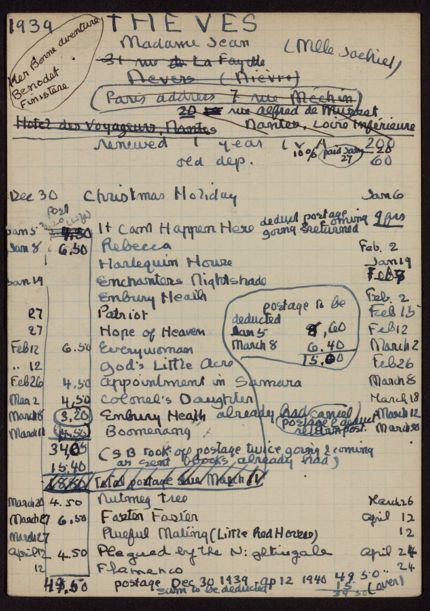 1939 THEVES
Madame Jean (Mlle Jochiel)
31 rue de La Fayette
Nevers (Nièvre)
Ker Bonne aventure
Benodet
Finistere
(Paris address 7 rue Méchin)
20 rue alfred de Musset
Hotel des Voyageurs, Nantes Nantes, Loire Inferieure
renewed 1 year 200
10% paid Jan 27 20
old dep. 60
Dec 30 Christmas Holiday Jan 6
post
Jan 5 4,50 It Can't Happen Here deduct postage coming 9 frs
going & returned
Jan 8 6,50 Rebecca Feb. 2
Harlequin House Jan 19
Jan 19 Enchanters Nightshade Feb 8
Embury Heath Feb. 2
27 Patriot Feb 15
27 Hope of Heaven Feb 12
postage to be
deducted
Jan 5 8,60
March 8 6,40
15,00
Feb 12 6.50 Everywoman March 2
" 12 God's Little Acre Feb 26
Feb 26 4,50 Appointment in Samara March 8
Mar 2 4,50 Colonel's Daughter March 18
March 8 3,20 Embury Heath already had cancel March 12
postage & deduct
return post.
March 11 4,50 Boomerang March 20
3405 (SB took off postage twice going & coming
15.40 as sent books already had)
18,50 Total postage due March 14
March 20 4.50 Nutmeg Tree March 26
March 27 6,50 Faster Faster April 12
March 27 Rueful Mating (Little Red Horses) 12
April 12 4,50 Plagued by the Nightingale April 24
12 Flamenco " 24
49.50 postage Dec 30 1939 - Ap 12 1940 49.50
sum to be deducted 15
(over)